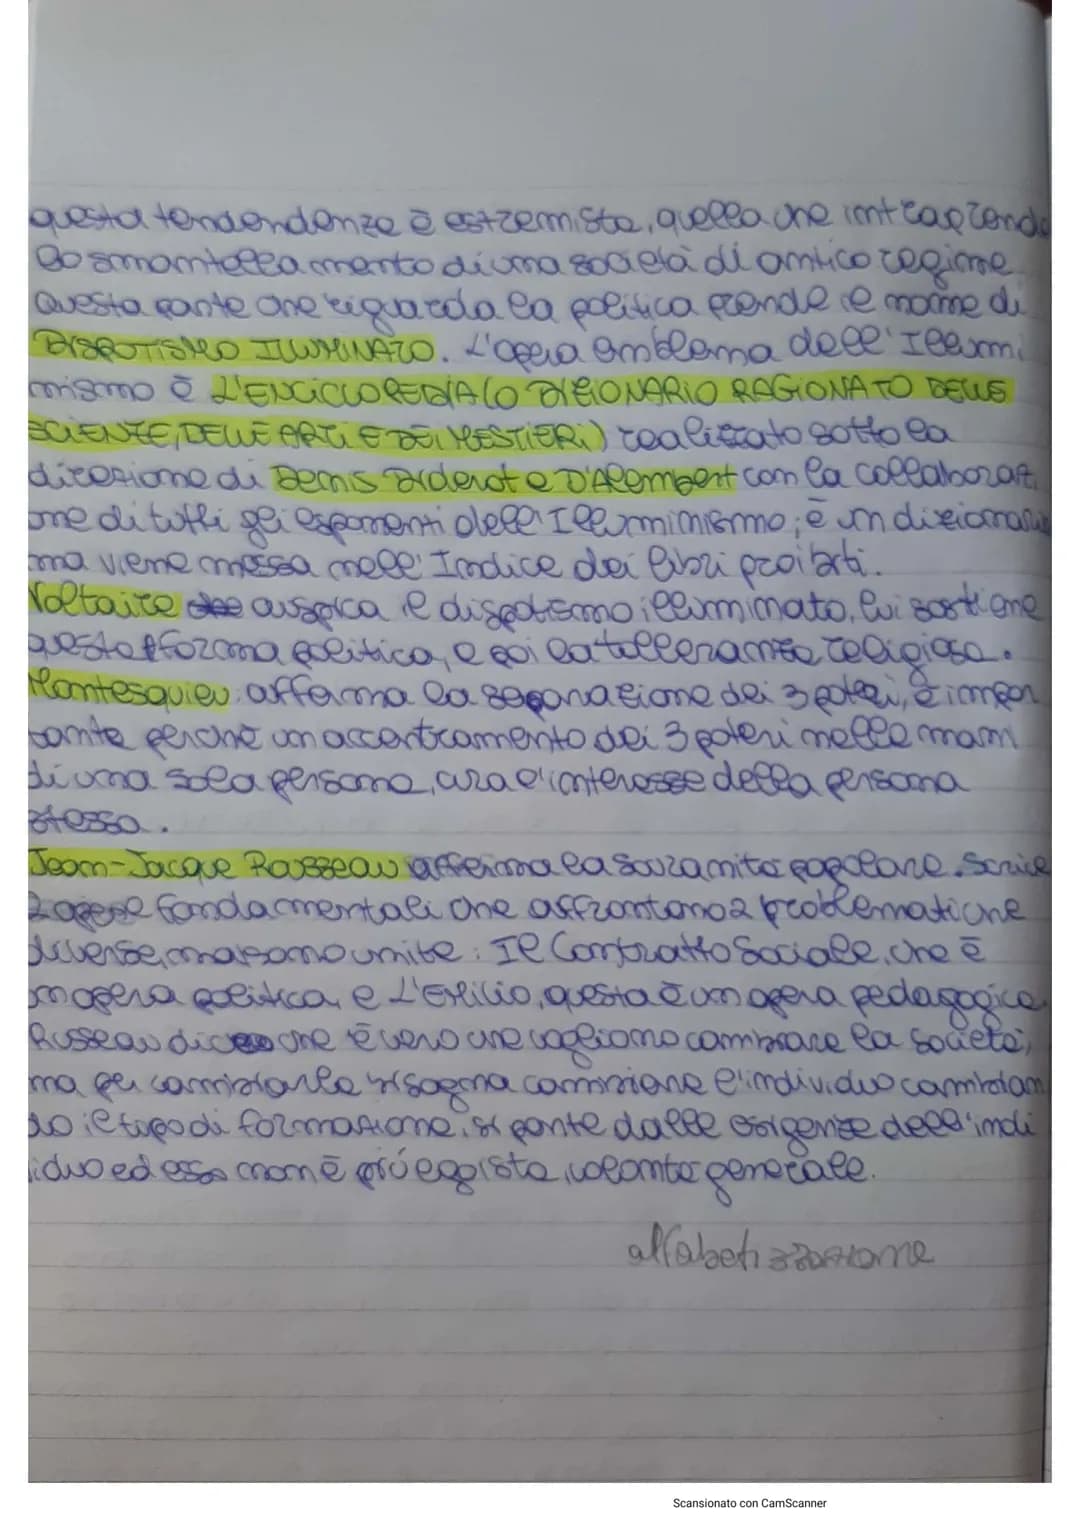 questa tendendenza è estremista, quella che intraprende
lo smantellamento di una società di antico regime
Questa parte che riguarda la politica prende il nome di
DISPOTISMO ILLUMINATO. L'opera emblema dell'Illumi
nismo è L'ENCICLOPEDIA (O DIZIONARIO RAGIONATO DELLE
SCIENZE, DELLE ARTI E DEI MESTIERI) realizzato sotto la
direzione di Denis Diderot e D'Alembert con la collaborazi
one di tutti gli esponenti dell'Illuminismo; è un dizionario
ma viene messa nell'Indice dei libri proibiti.
Voltaire auspica il dispotismo illuminato, lui sostiene
questa forma politica, e poi la tolleranza religiosa.
Montesquieu: afferma la separazione dei 3 poteri, è impor
tante perchè un accentramento dei 3 poteri nelle mani
di una sola persona, cura l'interesse della persona
stessa.
Jean-Jacque Rousseau afferma la sovranità popolare. Scrive
2 opere fondamentali che affrontano 2 problematiche
diverse, ma sono unite: Il Contratto Sociale, che è
un opera politica, e L'Emilio, questa è un opera pedagogica.
Russeau dice che è vero che vogliamo cambiare la società;
ma per cambiarla bisogna cambiare l'individuo cambian
do il tipo di formazione, si parte dalle esigenze dell'indi
viduo ed esso non è più egoista, volontà generale.
alfabetizzazione
Scansionato con CamScanner